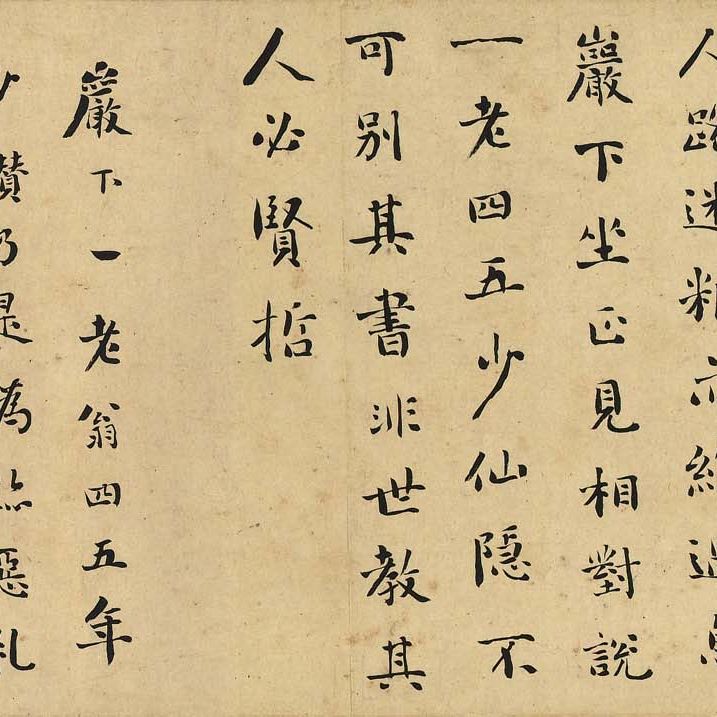 人迷亦過
巖下坐正見相對說
一老四五少仙隱不
可別其書非世教其
人必賢哲
巖下一老翁四五年
少讚乃是為惡亂